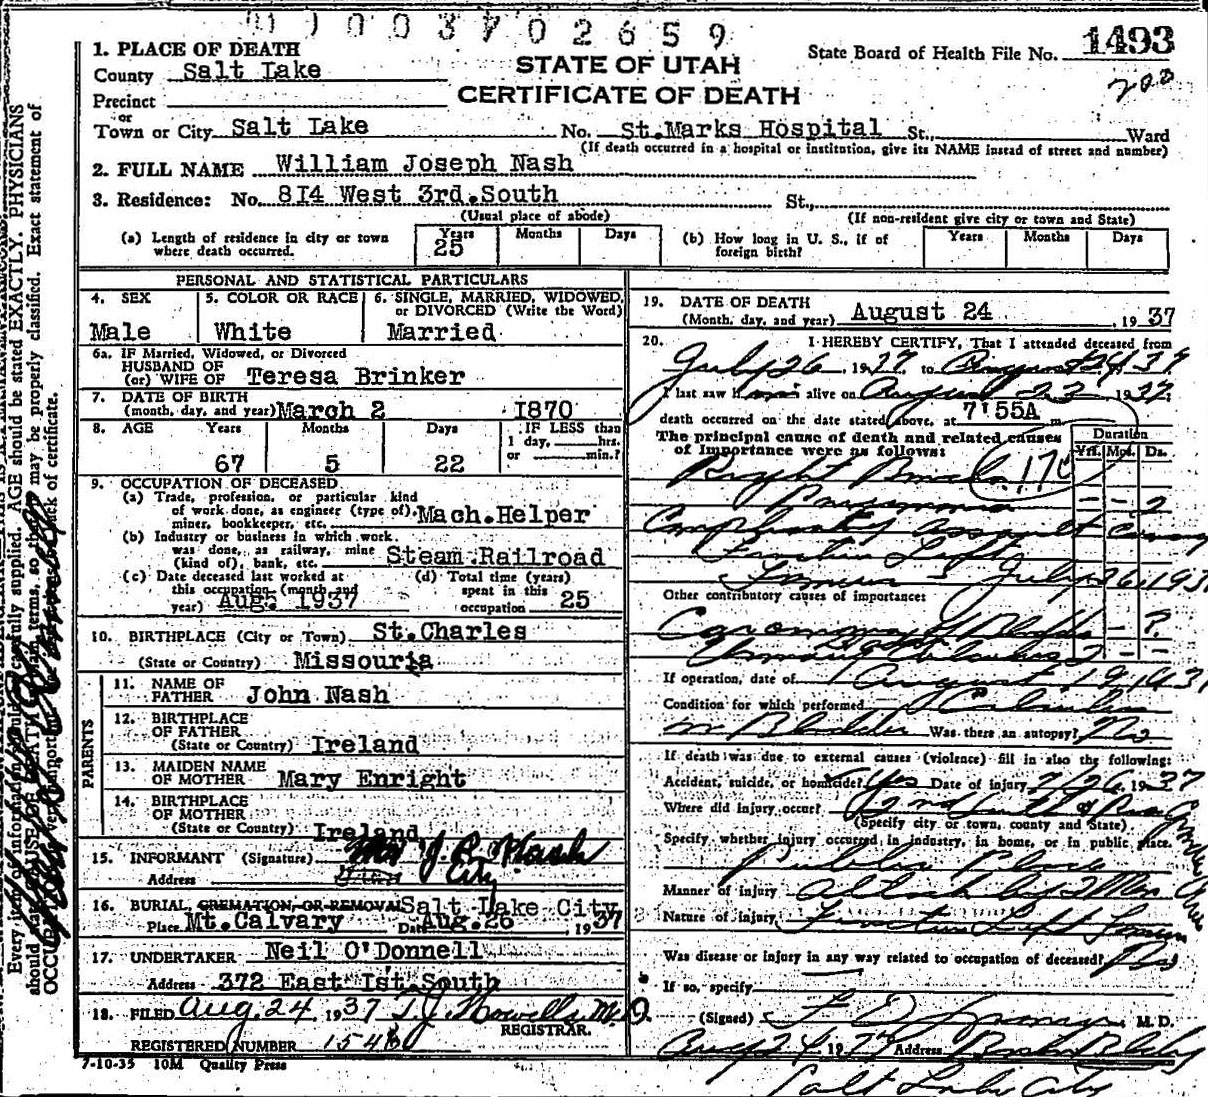 0003402659
State Board of Health File No. 1493
200
STATE OF UTAH
CERTIFICATE OF DEATH
1. PLACE OF DEATH
County Salt Lake
Precinct
or
Town or City Salt Lake No. St.Marks Hospital St., Ward
(If death occurred in a hospital or institution, give its NAME instead of street and number)
2. FULL NAME William Joseph Nash
3. Residence: No. 8I4 West 3rd.South St.,
(Usual place of abode) (If non-resident give city or town and State)
(a) Length of residence in city or town where death occurred. Years 25 Months Days
(b) How long in U. S., if of foreign birth? Years Months Days
PERSONAL AND STATISTICAL PARTICULARS
4. SEX Male
5. COLOR OR RACE White
6. SINGLE, MARRIED, WIDOWED, or DIVORCED (Write the Word) Married
6a. IF Married, Widowed, or Divorced
HUSBAND OF
(or) WIFE OF Teresa Brinker
7. DATE OF BIRTH
(month, day, and year) March 2 I870
8. AGE Years 67 Months 5 Days 22 IF LESS than 1 day, hrs. or min.?
9. OCCUPATION OF DECEASED
(a) Trade, profession, or particular kind
of work done, as engineer (type of),
miner, bookkeeper, etc. Mach.Helper
(b) Industry or business in which work
was done, as railway, mine
(kind of), bank, etc. Steam Railroad
(c) Date deceased last worked at
this occupation (month and
year) Aug. 1937
(d) Total time (years)
spent in this
occupation 25
10. BIRTHPLACE (City or Town) St.Charles
(State or Country) Missouria
PARENTS
11. NAME OF
FATHER John Nash
12. BIRTHPLACE
OF FATHER
(State or Country) Ireland
13. MAIDEN NAME
OF MOTHER Mary Enright
14. BIRTHPLACE
OF MOTHER
(State or Country) Ireland
15. INFORMANT (Signature) Mrs J. P. Nash
Address City
16. BURIAL, CREMATION, OR REMOVAL Salt Lake City
Place Mt.Calvary Date Aug.26 1937
17. UNDERTAKER Neil O'Donnell
Address 372 East Ist.South
18. FILED Aug. 24 1937 T.J. Howells, M.D.
REGISTRAR.
REGISTERED NUMBER
7-10-35 10M Quality Press
19. DATE OF DEATH
(Month, day, and year) August 24, 1937
20. I HEREBY CERTIFY, That I attended deceased from
July 26, 1937 to August 24 37
I last saw him alive on August 23, 1937;
death occurred on the date stated above, at 7'55A m.
The principal cause of death and related causes
of Importance were as follows: Duration Yrs. Mos. Ds.
Right Broncho
Pneumonia - - 2
Complicating assault
Fracture Left
Femur - July 26, 1937
Other contributory causes of importance:
If operation, date of August 19, 1937
Condition for which performed Calculus
in Bladder Was there an autopsy? No
If death was due to external causes (violence) fill in also the following:
Accident, suicide, or homicide? Yes Date of injury 7/26, 1937
Where did injury occur? 2nd
(Specify city or town, county and State)
Specify whether injury occurred in industry, in home, or in public place.
Public Place
Manner of injury Attack by 2 Men
Nature of injury Fracture Left Femur
Was disease or injury in any way related to occupation of deceased? No
If so, specify
(Signed) M. D.
Aug 24, 1937 Address
Salt Lake City